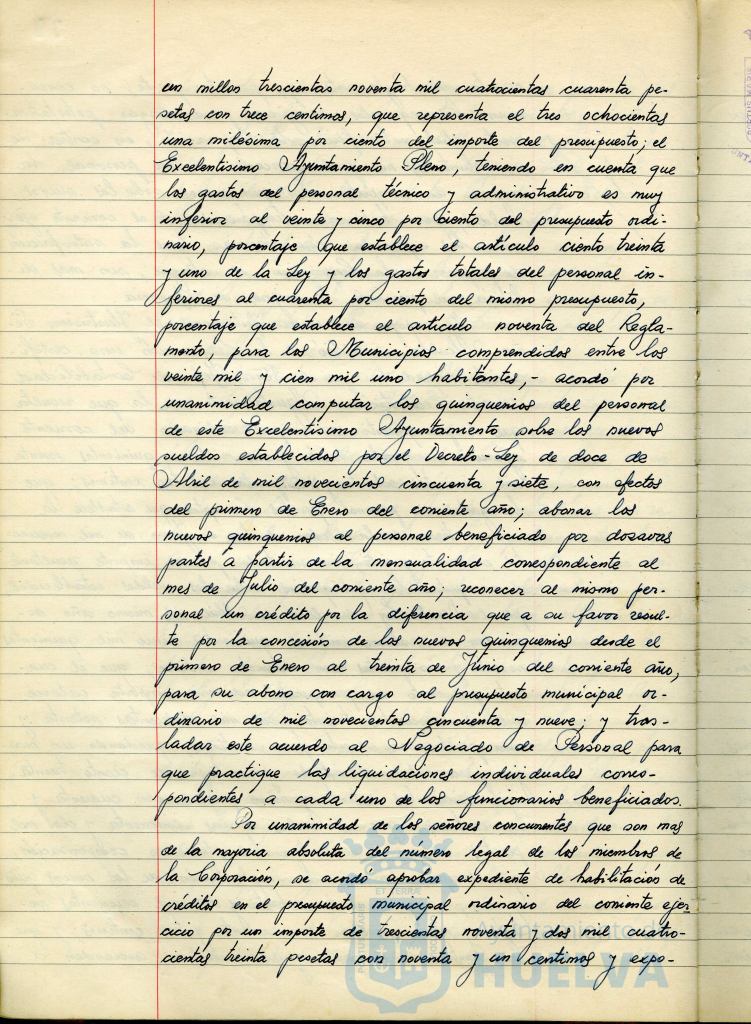 un millon trescientas noventa mil cuatrocientas cuarenta pe-
setas con trece centimos, que representa el tres ochocientas
una milésima por ciento del importe del presupuesto; el
Excelentisimo Ayuntamiento Pleno, teniendo en cuenta que
los gastos del personal técnico y administrativo es muy
inferior al veinte y cinco por ciento del presupuesto ordi-
nario, porcentaje que establece el artículo ciento treinta
y uno de la Ley y los gastos totales del personal in-
feriores al cuarenta por ciento del mismo presupuesto,
porcentaje que establece el artículo noventa del Regla-
mento, para los Municipios comprendidos entre los
veinte mil y cien mil uno habitantes,- acordó por
unanimidad computar los quinquenios del personal
de este Excelentisimo Ayuntamiento sobre los nuevos
sueldos establecidos por el Decreto-Ley de doce de
Abril de mil novecientos cincuenta y siete, con efectos
del primero de Enero del corriente año; abonar los
nuevos quinquenios al personal beneficiado por dozavas
partes a partir de la mensualidad correspondiente al
mes de Julio del corriente año; reconocer al mismo per-
sonal un crédito por la diferencia que a su favor resul-
te por la concesión de los nuevos quinquenios desde el
primero de Enero al treinta de Junio del corriente año,
para su abono con cargo al presupuesto municipal or-
dinario de mil novecientos cincuenta y nueve; y tras-
ladar este acuerdo al Negociado de Personal para
que practique las liquidaciones individuales corres-
pondientes a cada uno de los funcionarios beneficiados.
Por unanimidad de los señores concurrentes que son mas
de la mayoria absoluta del número legal de los miembros de
la Corporación, se acordó aprobar expediente de habilitación de
créditos en el presupuesto municipal ordinario del corriente ejer
cicio por un importe de trescientas noventa y dos mil cuatro-
cientas treinta pesetas con noventa y un centimos y expo-
HUELVA